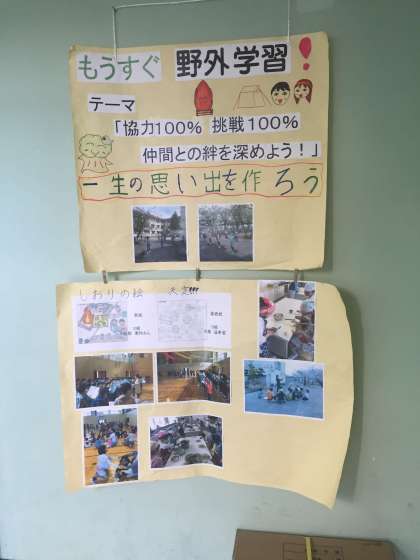 もうすぐ 野外学習!
テーマ
「協力100% 挑戦100%
仲間との絆を深めよう!」
一生の思い出を作ろう
しおりの絵 決定!!!
表紙
裏表紙